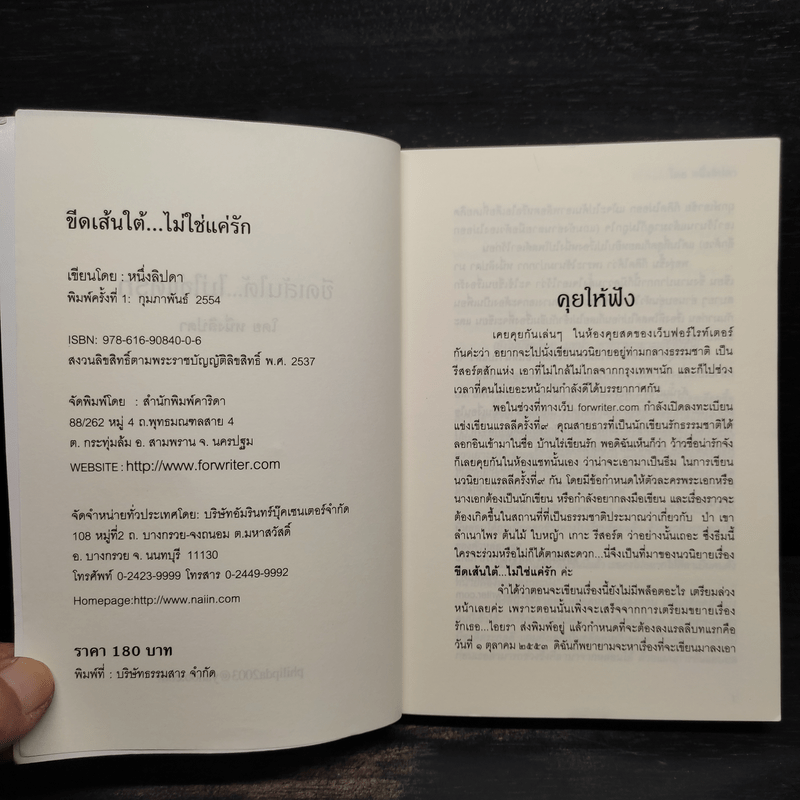 ขีดเส้นใต้...ไม่ใช่แค่รัก
เขียนโดย : หนึ่งลิปดา
พิมพ์ครั้งที่ 1: กุมภาพันธ์ 2554
ISBN: 978-616-90840-0-6
สงวนลิขสิทธิ์ตามพระราชบัญญัติลิขสิทธิ์ พ.ศ. 2537
จัดพิมพ์โดย : สำนักพิมพ์คาริดา
88/262 หมู่ 4 ถ.พุทธมณฑลสาย 4
ต. กระทุ่มล้ม อ. สามพราน จ. นครปฐม
WEBSITE : http://www.forwriter.com
จัดจำหน่ายทั่วประเทศโดย: บริษัทอัมรินทร์บุ๊คเซนเตอร์จำกัด
108 หมู่ที่2 ถ. บางกรวย-จงถนอม ต.มหาสวัสดิ์
อ. บางกรวย จ. นนทบุรี 11130
โทรศัพท์ 0-2423-9999 โทรสาร 0-2449-9992
Homepage:http://www.naiin.com
ราคา 180 บาท
พิมพ์ที่ : บริษัทธรรมสาร จำกัด
คุยให้ฟัง
เคยคุยกันเล่นๆ ในห้องคุยสดของเว็บฟอร์ไรท์เตอร์
กันค่ะว่า อยากจะไปนั่งเขียนนวนิยายอยู่ท่ามกลางธรรมชาติ เป็น
รีสอร์ตสักแห่ง เอาที่ไม่ใกล้ไม่ไกลจากกรุงเทพฯนัก และก็ไปช่วง
เวลาที่คนไม่เยอะหน้าฝนกำลังดีได้บรรยากาศกัน
พอในช่วงที่ทางเว็บ forwriter.com กำลังเปิดลงทะเบียน
แข่งเขียนแรลลี่ครั้งที่๙ คุณสายธารที่เป็นนักเขียนรักธรรมชาติได้
ลอกอินเข้ามาในชื่อ บ้านไร่เขียนรัก พอดิฉันเห็นก็ว่า ว้าวชื่อน่ารักจัง
ก็เลยคุยกันในห้องแชทนั้นเอง ว่าน่าจะเอามาเป็นธีม ในการเขียน
นวนิยายแรลลี่ครั้งที่๙ กัน โดยมีข้อกำหนดให้ตัวละครพระเอกหรือ
นางเอกต้องเป็นนักเขียน หรือกำลังอยากลงมือเขียน และเรื่องราวจะ
ต้องเกิดขึ้นในสถานที่ที่เป็นธรรมชาติประมาณว่าเกี่ยวกับ ป่า เขา
ลำเนาไพร ต้นไม้ ใบหญ้า เกาะ รีสอร์ต ว่าอย่างนั้นเถอะ ซึ่งธีมนี้
ใครจะร่วมหรือไม่ก็ได้ตามสะดวก...นี่จึงเป็นที่มาของนวนิยายเรื่อง
ขีดเส้นใต้...ไม่ใช่แค่รัก ค่ะ
จำได้ว่าตอนจะเขียนเรื่องนี้ยังไม่มีพล็อตอะไร เตรียมล่วง
หน้าเลยค่ะ เพราะตอนนั้นเพิ่งจะเสร็จจากการเตรียมขยายเรื่อง
รักเธอ...ไอยรา ส่งพิมพ์อยู่ แล้วกำหนดที่จะต้องลงแรลลี่บทแรกคือ
วันที่ ๑ ตุลาคม ๒๕๕๓ ดิฉันก็พยายามจะหาเรื่องที่จะเขียนมาลงเอา